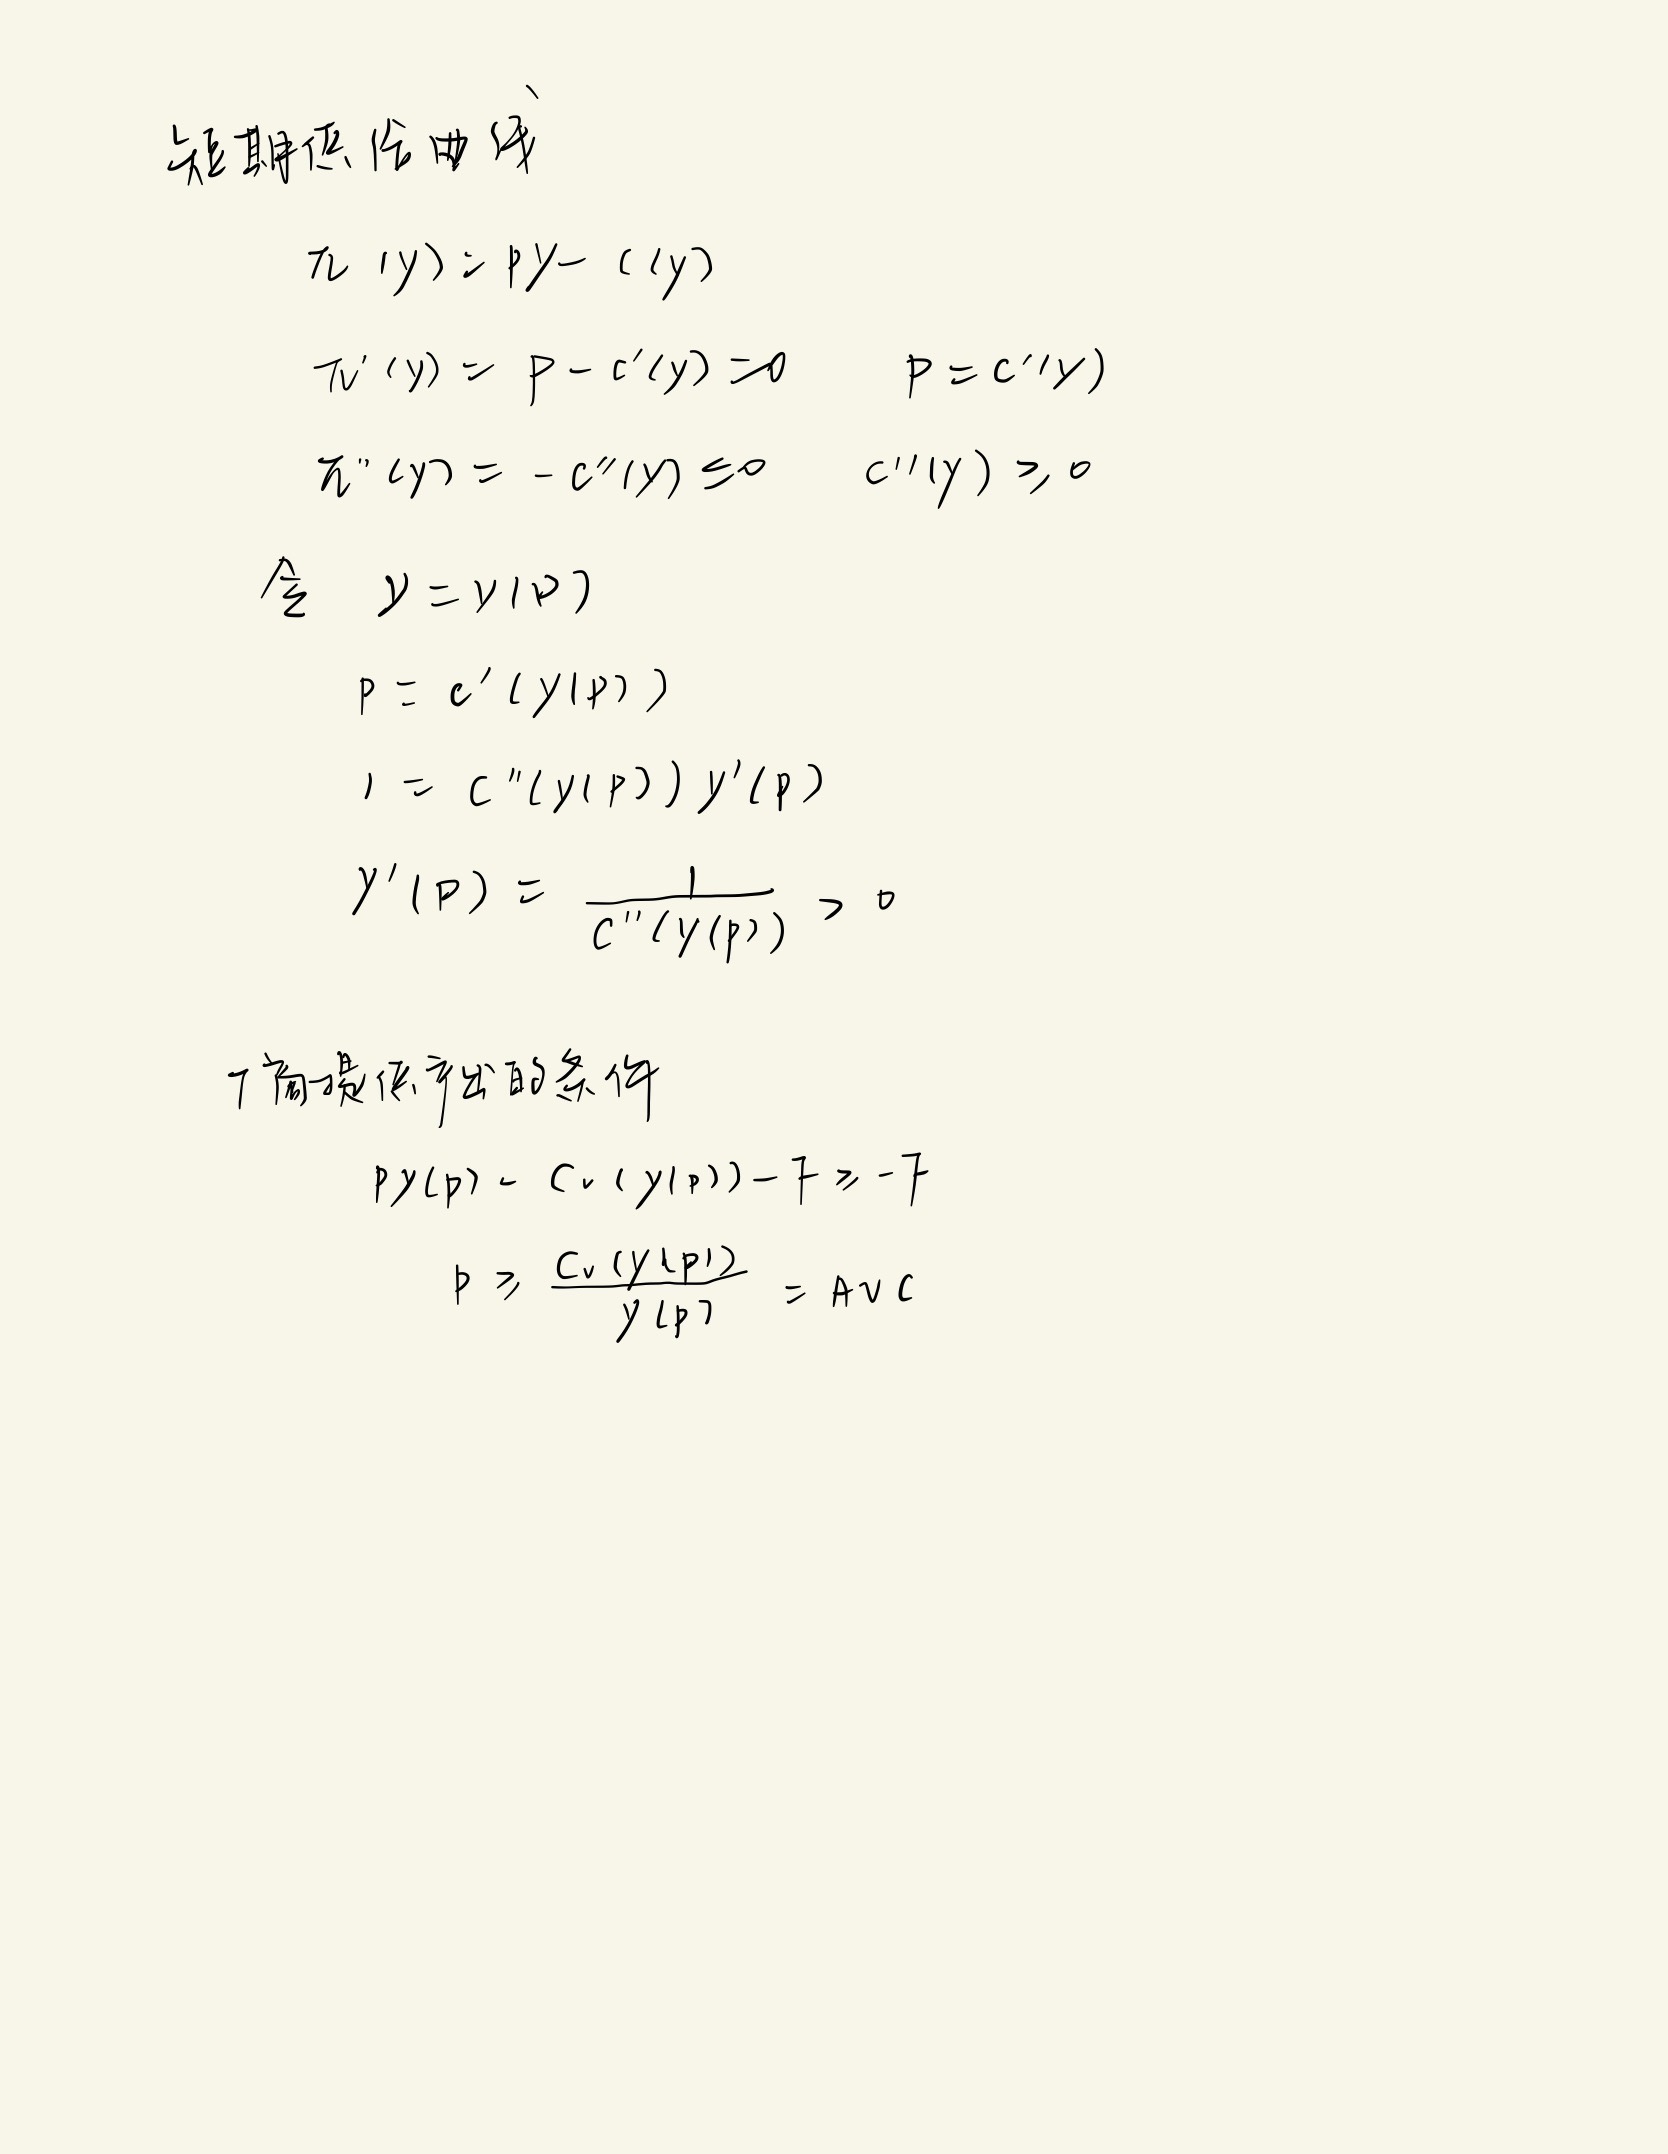 短期供给曲线
π(y) = py - c(y)
π'(y) = p - c'(y) = 0    p = c'(y)
π''(y) = -c''(y) ≤ 0    c''(y) ≥ 0
令 y = y(p)
p = c'(y(p))
1 = c''(y(p)) y'(p)
y'(p) = 1 / c''(y(p)) > 0
厂商提供产出的条件
py(p) - Cv(y(p)) - F ≥ -F
p ≥ Cv(y(p)) / y(p) = AVC